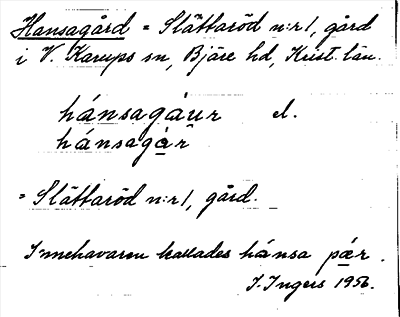 Hansagård = Slättaröd n:r 1, gård
i V. Karups sn, Bjäre hd, Krist. län.
hánsagáur el.
hánsagår̂
= Slättaröd n:r 1, gård.
Innehavaren kallades hánsa pær.
I. Ingers 1956.